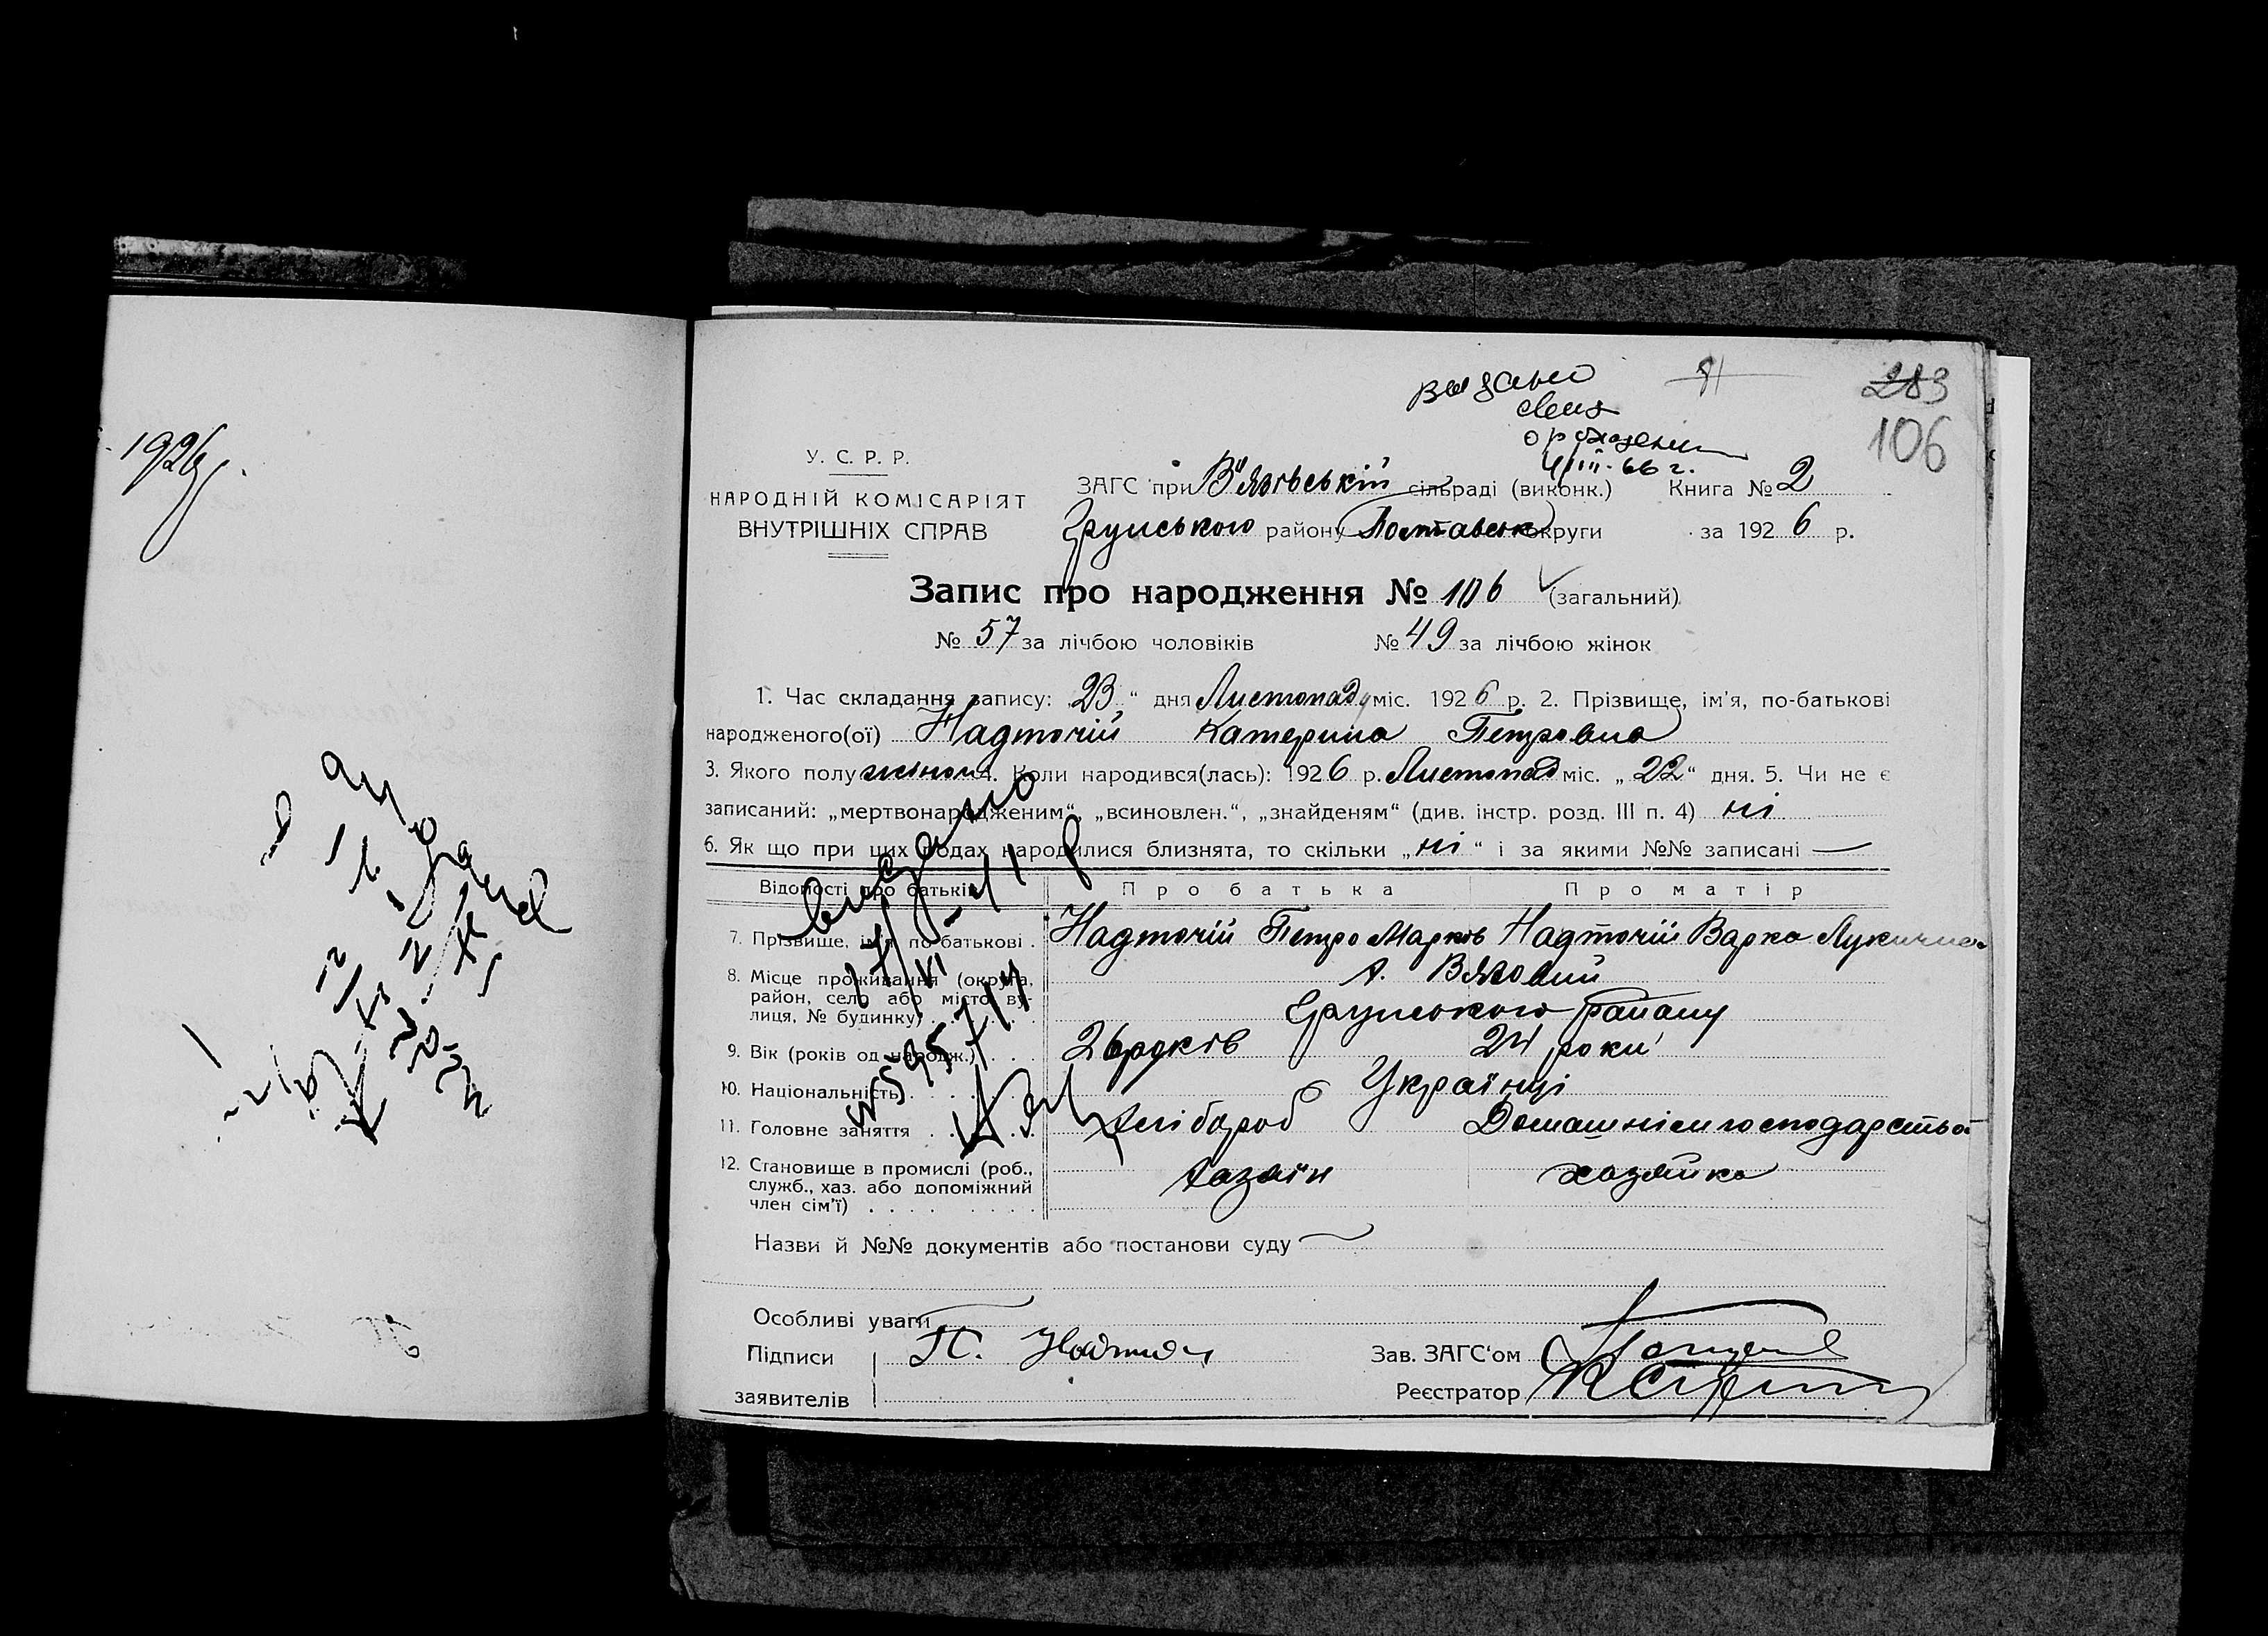 1926 р.
283
106
У. С. Р. Р.
НАРОДНІЙ КОМІСАРІЯТ
ВНУТРІШНІХ СПРАВ
видано
о рождении
66 г.
ЗАГС при В'язівській сільраді (виконк.) Книга № 2
Грунського району Полтавськ округи за 1926 р.
Запис про народження № 106 (загальний)
№ 57 за лічбою чоловіків № 49 за лічбою жінок
1. Час складання запису: „23“ дня Листопаду міс. 1926 р. 2. Прізвище, ім'я, по-батькові
народженого(ої) Надточій Катерина Петровна
3. Якого полу жіноч. 4. Коли народився(лась): 1926 р. Листопад міс. „22“ дня. 5. Чи не є
записаний: „мертвонародженим“, „всиновлен.“, „знайденям“ (див. інстр. розд. III п. 4) ні
6. Як що при цих родах народилися близнята, то скільки „ні“ і за якими №№ записані —
Відомості про батьків Про батька Про матір
7. Прізвище, ім'я, по-батькові . Надточій Петро Марков Надточій Варка Лукична
8. Місце проживання (округа, х. Вязовий
район, село або місто, ву-
лиця, № будинку) . . . Грунського району
9. Вік (років од народж.) . . . 26 років 24 роки
10. Національність . . . . . Українці
11. Головне заняття . . . . Хлібороб Домашнім господарством
12. Становище в промислі (роб., Хазяїн хазяйка
служб., хаз. або допоміжний
член сім'ї) . . . . . . . .
видано
Назви й №№ документів або постанови суду
Особливі уваги
Підписи П. Надточ
заявителів
Зав. ЗАГС'ом
Реєстратор